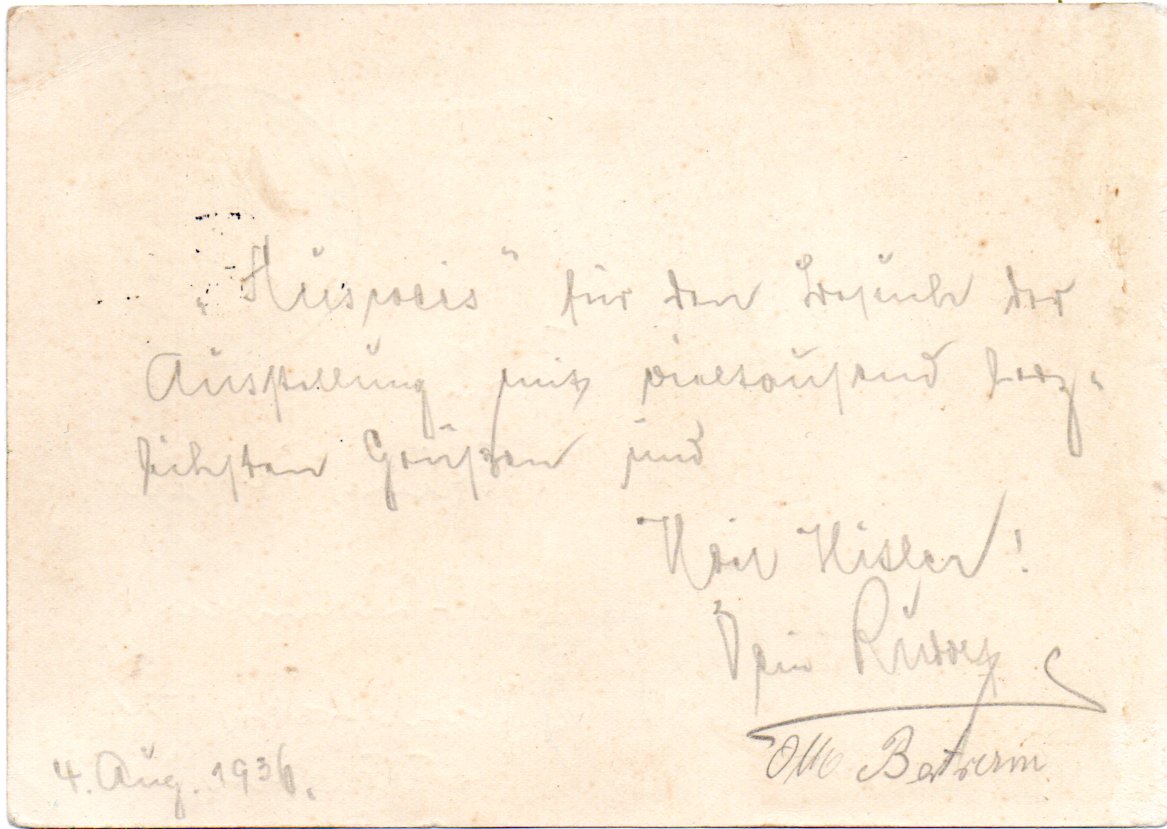 für den Besuch der
Ausstellung mit vieltausend herz-
lichsten Grüßen und
Heil Hitler!
Dein Rudolf
Otto
4. Aug. 1936.